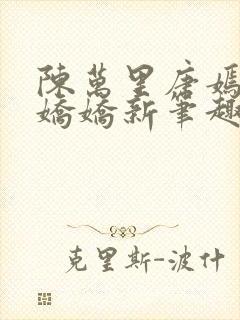 陳萬里唐嫣
嬌嬌新筆趣
克里斯-波什